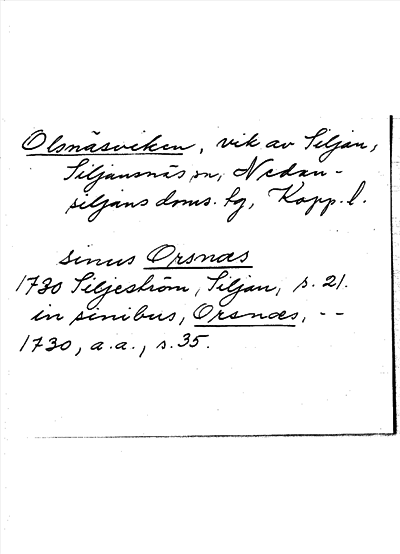 Olsnäsviken, vik av Siljan,
Siljansnäs sn, Nedan-
siljans doms. tg, Kopp. l.
sinus Orsnæs
1730 Siljeström, Siljan, s. 21.
in sinibus, Orsnæs, --
1730, a.a., s. 35.